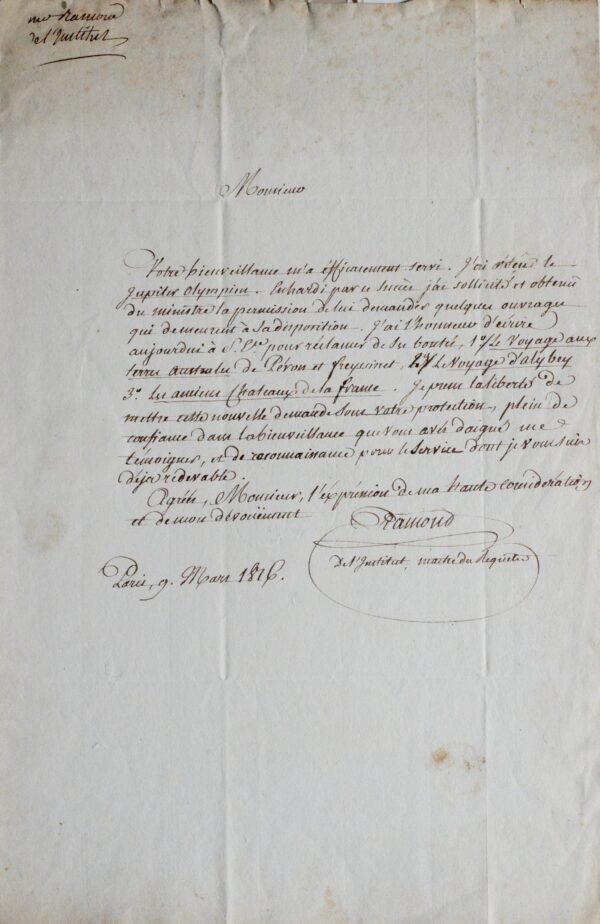 mr Ramond
de l'Institut
Monsieur
Votre bienveillance m'a éfficacement servi. J'ai obtenu le
Jupiter Olympien. Enhardi par ce succès j'ai sollicité et obtenu
du ministre la permission de lui demander quelques ouvrages
qui demeurent à sa disposition. J'ai l'honneur d'écrire
aujourdui à S. Exce pour réclamer de sa bonté, 1° Le Voyage aux
terres australes de Péron et freycinet, 2° Le Voyage d'aly bey
3° les anciens Chateaux de la france. Je prens la liberté de
mettre cette nouvelle demande sous votre protection, plein de
confiance dans la bienveillance que vous avés daigné me
témoigner, et de reconnaissance pour le service dont je vous suis
déja redevable.
Agréés, Monsieur, l'expréssion de ma haute consideration
et de mon dévouëment
Ramond
De l'Institut, maitre des Requetes
Paris, 9. Mars 1816.